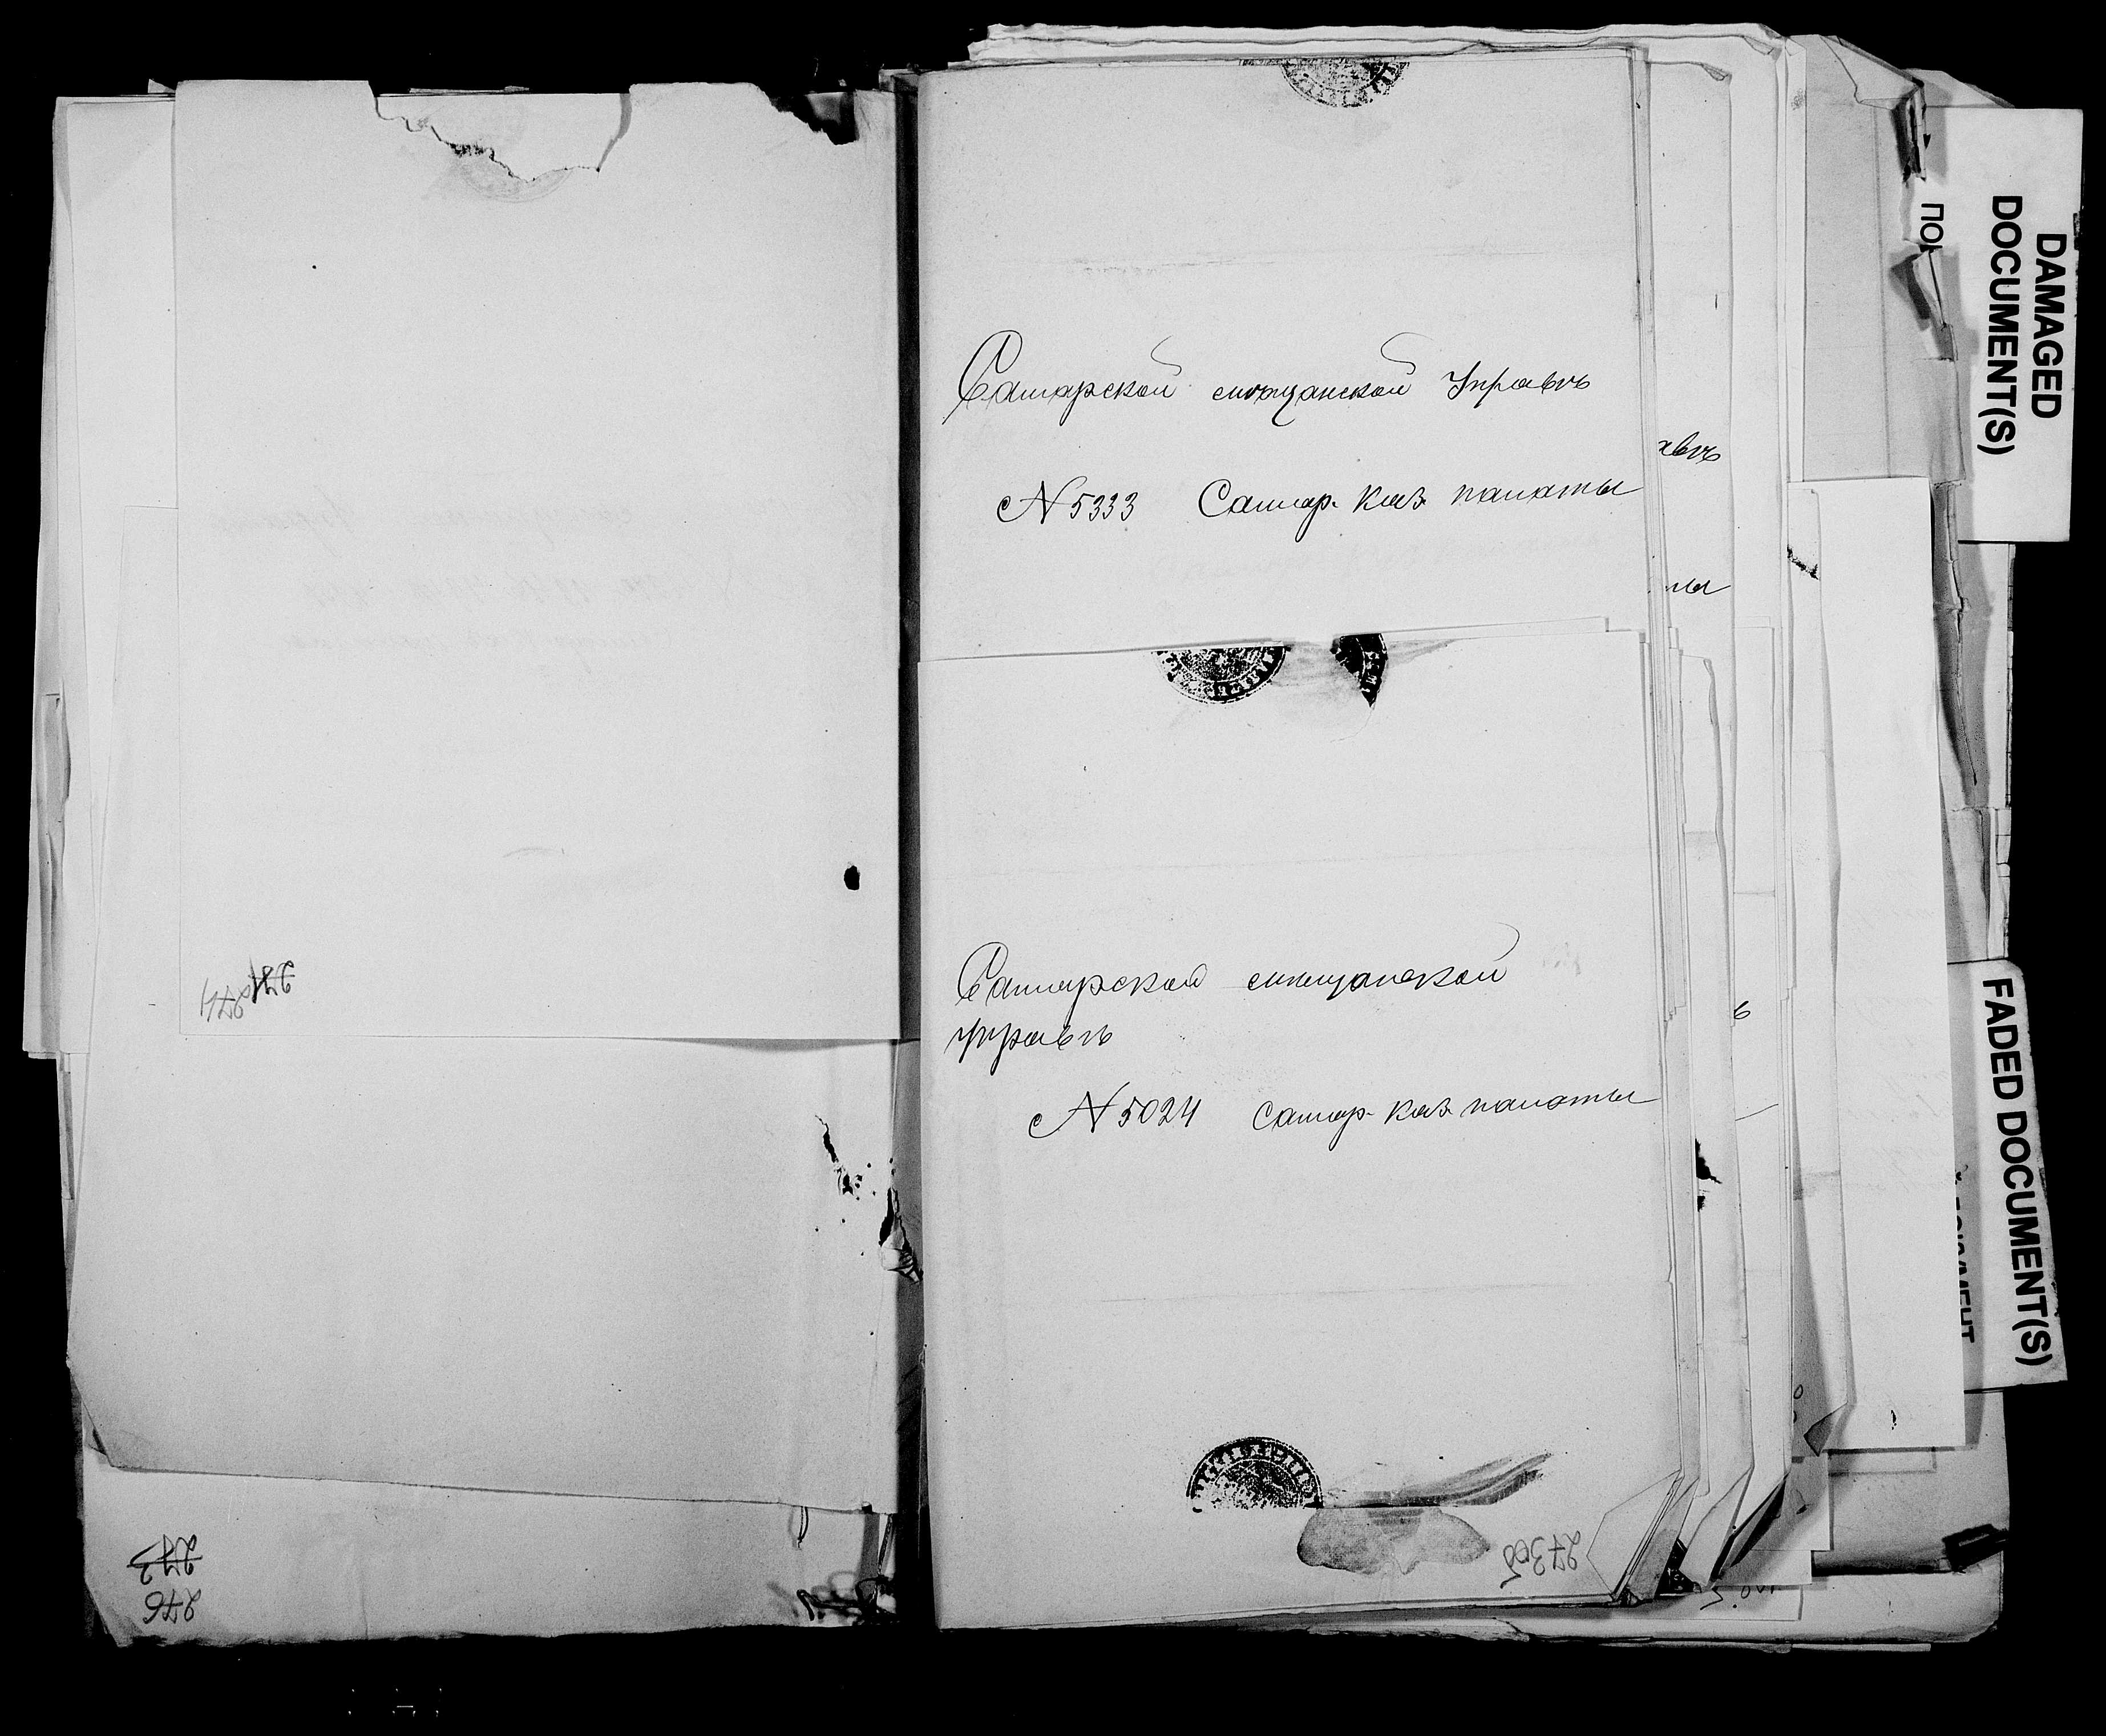 Самарской мѣщанской Управѣ
№ 5333 Самар. Каз. палаты
авѣ
ты
Самарской мѣщанской
управѣ
№ 5024 Самар. Каз. палаты
DAMAGED
DOCUMENT(S)
FADED DOCUMENT(S)
273
276